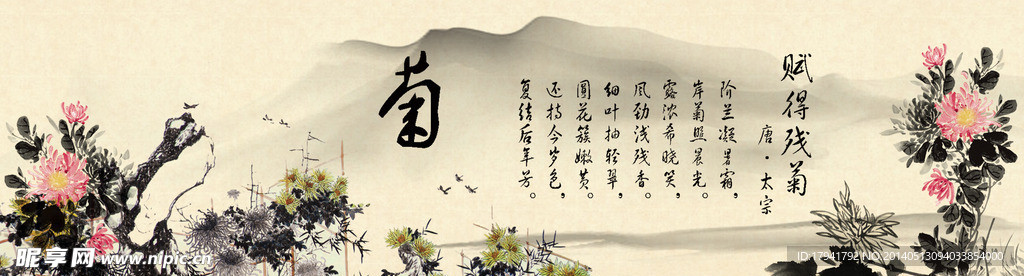 赋得残菊
唐·太宗
阶兰凝曙霜，
岸菊照晨光。
露浓希晓笑，
风劲浅残香。
细叶抽轻翠，
圆花簇嫩黄。
还持今岁色，
复结后年芳。
菊
昵享网 www.nipic.cn
ID:17941792 NO:20140513094033854000